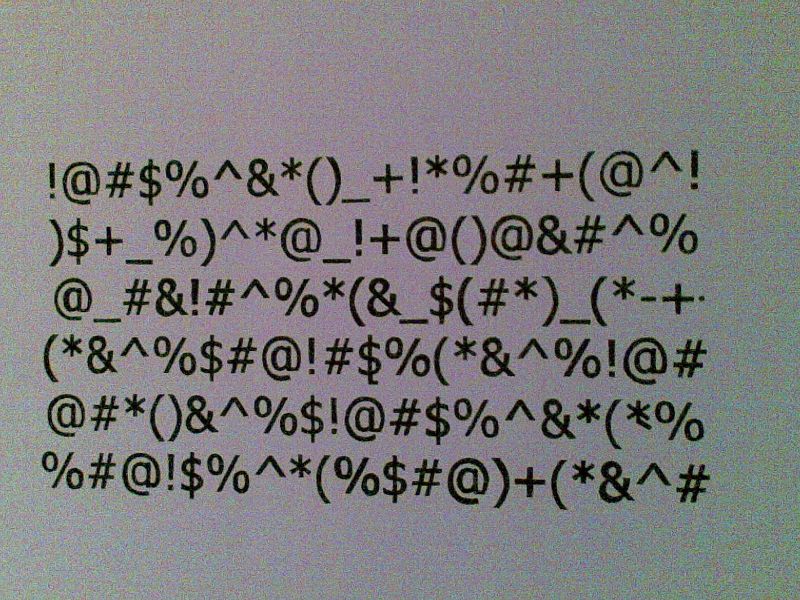 !@#$%^&*()_+!*%#+(@^!
)$+_%)^*@_!+@()@&#^%
@_#&!#^%*(&_$(#*)_(*-+·
(*&^%$#@!#$%(*&^%!@#
@#*()&^%$!@#$%^&*(*%
%#@!$%^*(%$#@)+(*&^#